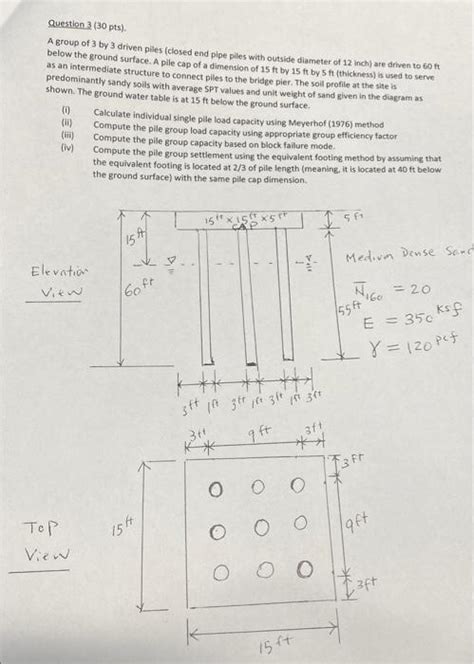 Question 3 (30 pts).
A group of 3 by 3 driven piles (closed end pipe piles with outside diameter of 12 inch) are driven to 60 ft
below the ground surface. A pile cap of a dimension of 15 ft by 15 ft by 5 ft (thickness) is used to serve
as an intermediate structure to connect piles to the bridge pier. The soil profile at the site is
predominantly sandy soils with average SPT values and unit weight of sand given in the diagram as
shown. The ground water table is at 15 ft below the ground surface.
(i) Calculate individual single pile load capacity using Meyerhof (1976) method
(ii) Compute the pile group load capacity using appropriate group efficiency factor
(iii) Compute the pile group capacity based on block failure mode.
(iv) Compute the pile group settlement using the equivalent footing method by assuming that
the equivalent footing is located at 2/3 of pile length (meaning, it is located at 40 ft below
the ground surface) with the same pile cap dimension.
15ft x 15ft x 5ft
CAP
5 ft
15ft
Elevation
View
60ft
55ft
Medium Dense Sand
N̅160 = 20
E = 350 ksf
γ = 120 pcf
3ft 1ft 3ft 1ft 3ft 1ft 3ft
3ft 9ft 3ft
3ft
Top
View
15ft
9ft
3ft
15ft